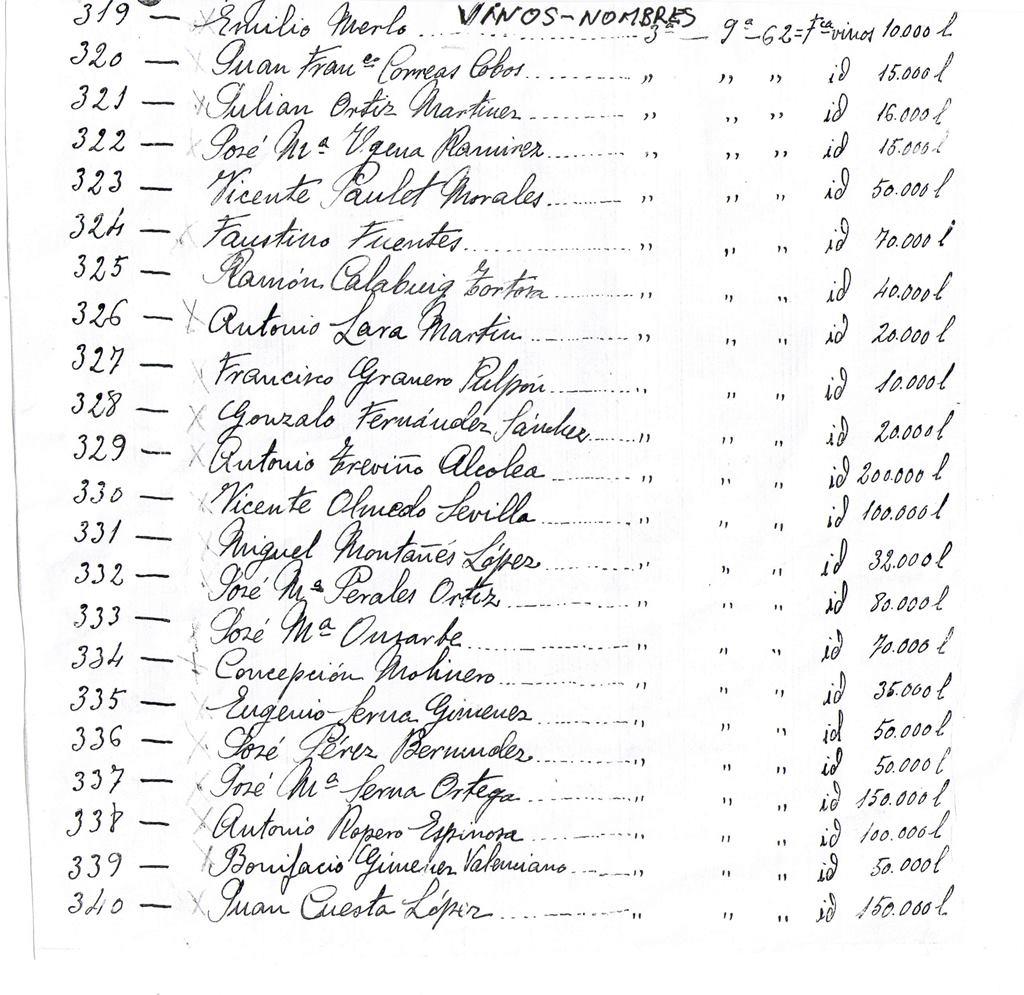 VINOS-NOMBRES
319 — Emilio Merlo 3ª — 9ª-62=Fca vinos 10.000 l
320 — Juan Franco Correas Cobos ,, ,, ,, id 15.000 l
321 — Julian Ortiz Martinez ,, ,, ,, id 16.000 l
322 — José Mª Ygena Ramirez ,, ,, ,, id 15.000 l
323 — Vicente Paulet Morales ,, ,, ,, id 50.000 l
324 — Faustino Fuentes ,, ,, ,, id 70.000 l
325 — Ramón Calabuig Tortosa ,, ,, ,, id 40.000 l
326 — Antonio Lara Martin ,, ,, ,, id 20.000 l
327 — Francisco Granero Pulpón ,, ,, ,, id 10.000 l
328 — Gonzalo Fernández Sánchez ,, ,, ,, id 20.000 l
329 — Antonio Treviño Alcolea ,, ,, ,, id 200.000 l
330 — Vicente Olmedo Sevilla ,, ,, ,, id 100.000 l
331 — Miguel Montañés López ,, ,, ,, id 32.000 l
332 — José Mª Perales Ortiz ,, ,, ,, id 80.000 l
333 — José Mª ,, ,, ,, id 70.000 l
334 — Concepción Molinero ,, ,, ,, id 35.000 l
335 — Eugenio Serna Gimenez ,, ,, ,, id 50.000 l
336 — José Pérez Bermudez ,, ,, ,, id 50.000 l
337 — José Mª Serna Ortega ,, ,, ,, id 150.000 l
338 — Antonio Ropero Espinosa ,, ,, ,, id 100.000 l
339 — Bonifacio Gimenez Valenciano ,, ,, ,, id 50.000 l
340 — Juan Cuesta López ,, ,, ,, id 150.000 l